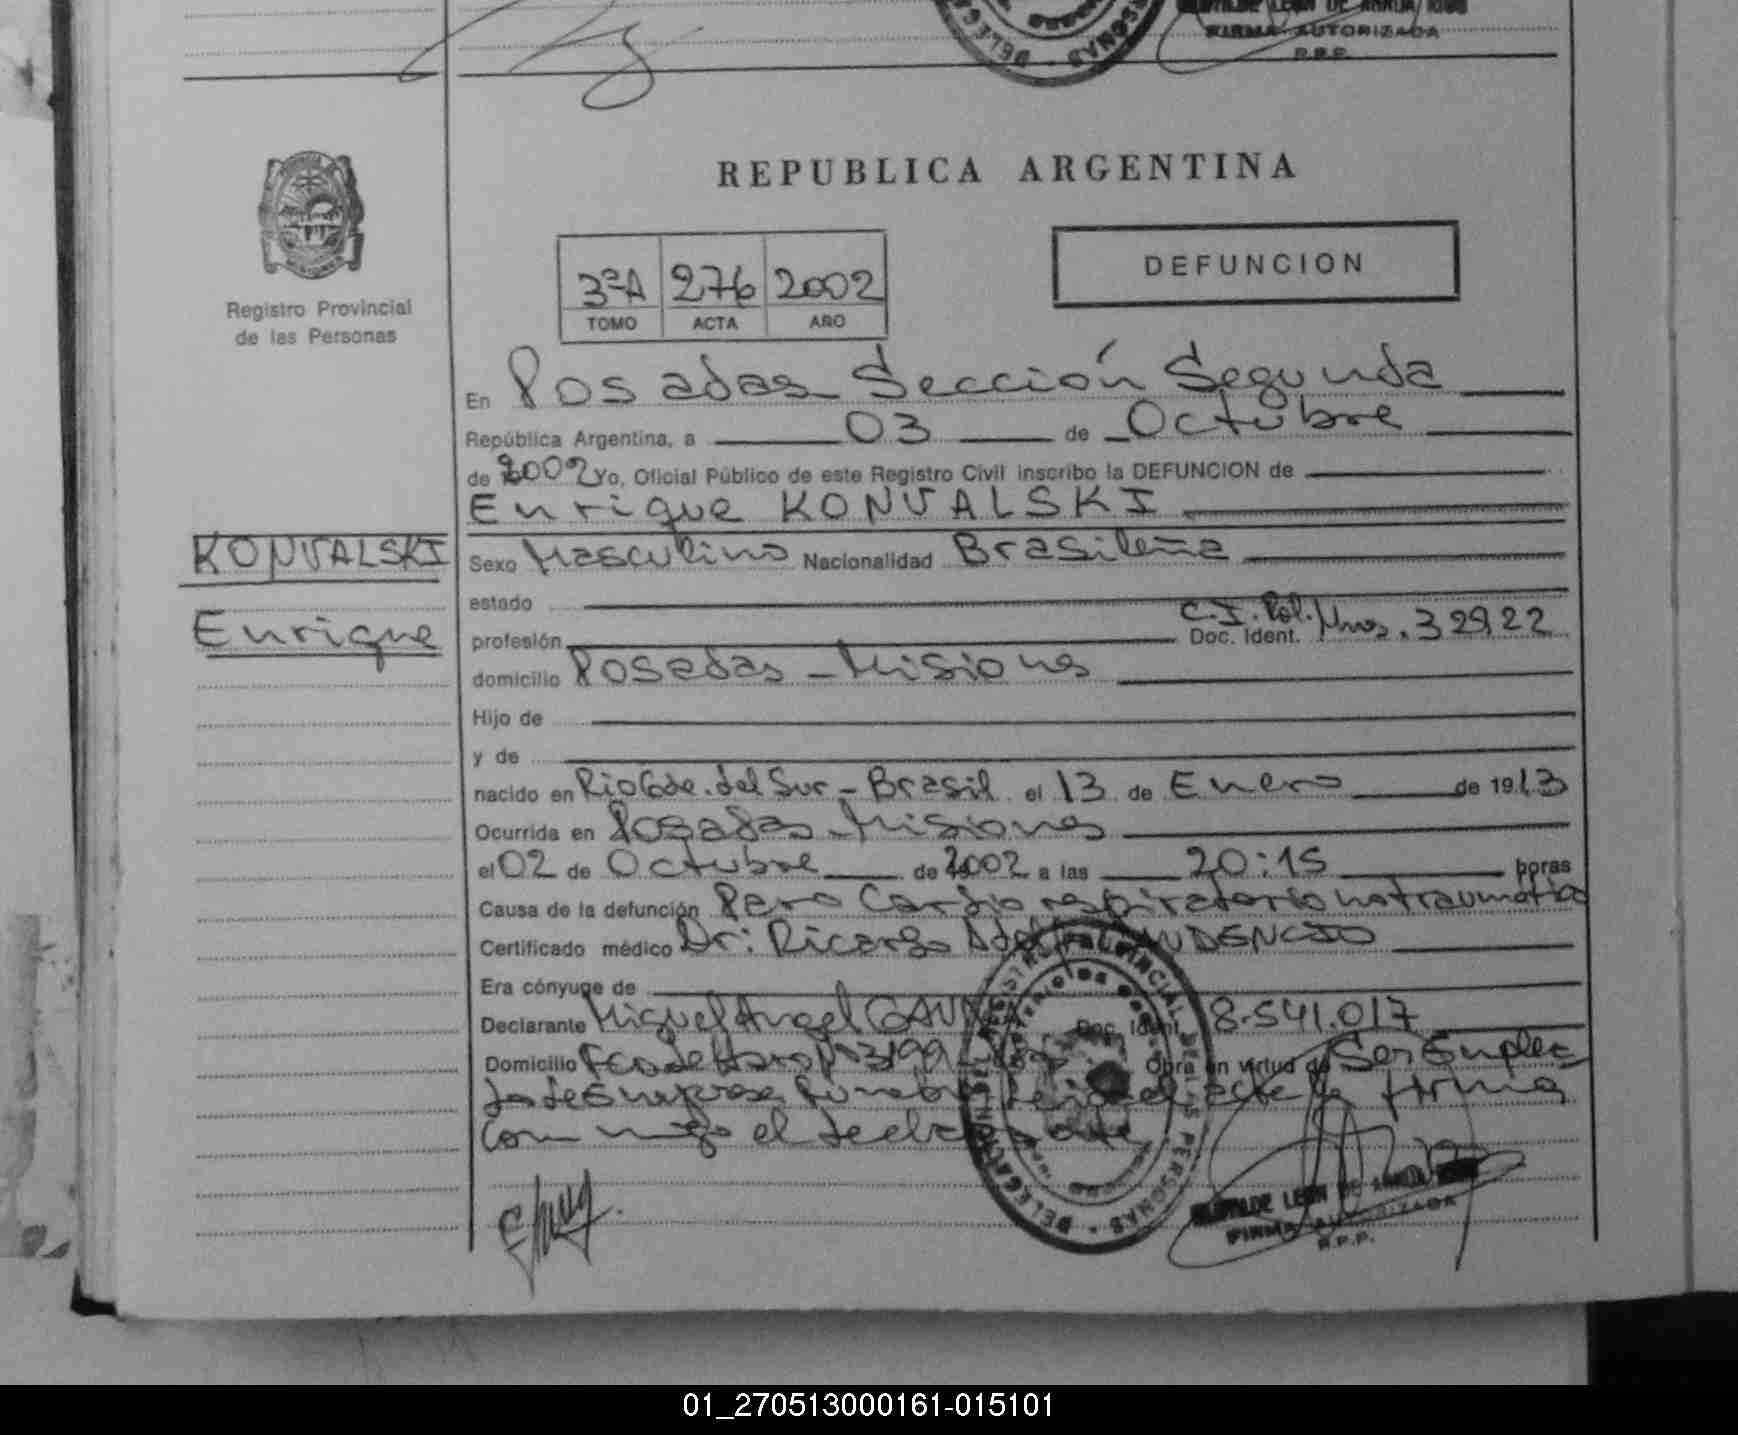 FIRMA AUTORIZADA
R.P.P.
REPUBLICA ARGENTINA
Registro Provincial
de las Personas
3ºA 276 2002
TOMO ACTA AÑO
DEFUNCION
En Posadas Sección Segunda
República Argentina, a 03 de Octubre
de 2002 Yo, Oficial Público de este Registro Civil inscribo la DEFUNCION de
Enrique KONVALSKI
KONVALSKI
Enrique
Sexo Masculino Nacionalidad Brasileña
estado
profesión Doc. Ident. C.I. Pol. Mnes. 32922
domicilio Posadas - Misiones
Hijo de
y de
nacido en Rio Gde. del Sur - Brasil el 13 de Enero de 1913
Ocurrida en Posadas - Misiones
el 02 de Octubre de 2002 a las 20:15 horas
Causa de la defunción Paro Cardio respiratorio no traumático
Certificado médico Dr: Ricardo
Era cónyuge de
Declarante Miguel Angel Doc. Ident. 8.541.017
Domicilio Fco de Haro Nº 3199 Obra en virtud de Ser Emplea
do de Empresa Funebre Leida el acta la firma
conmigo el declarante
LEON DE
FIRMA AUTORIZADA
R.P.P.
01_270513000161-015101